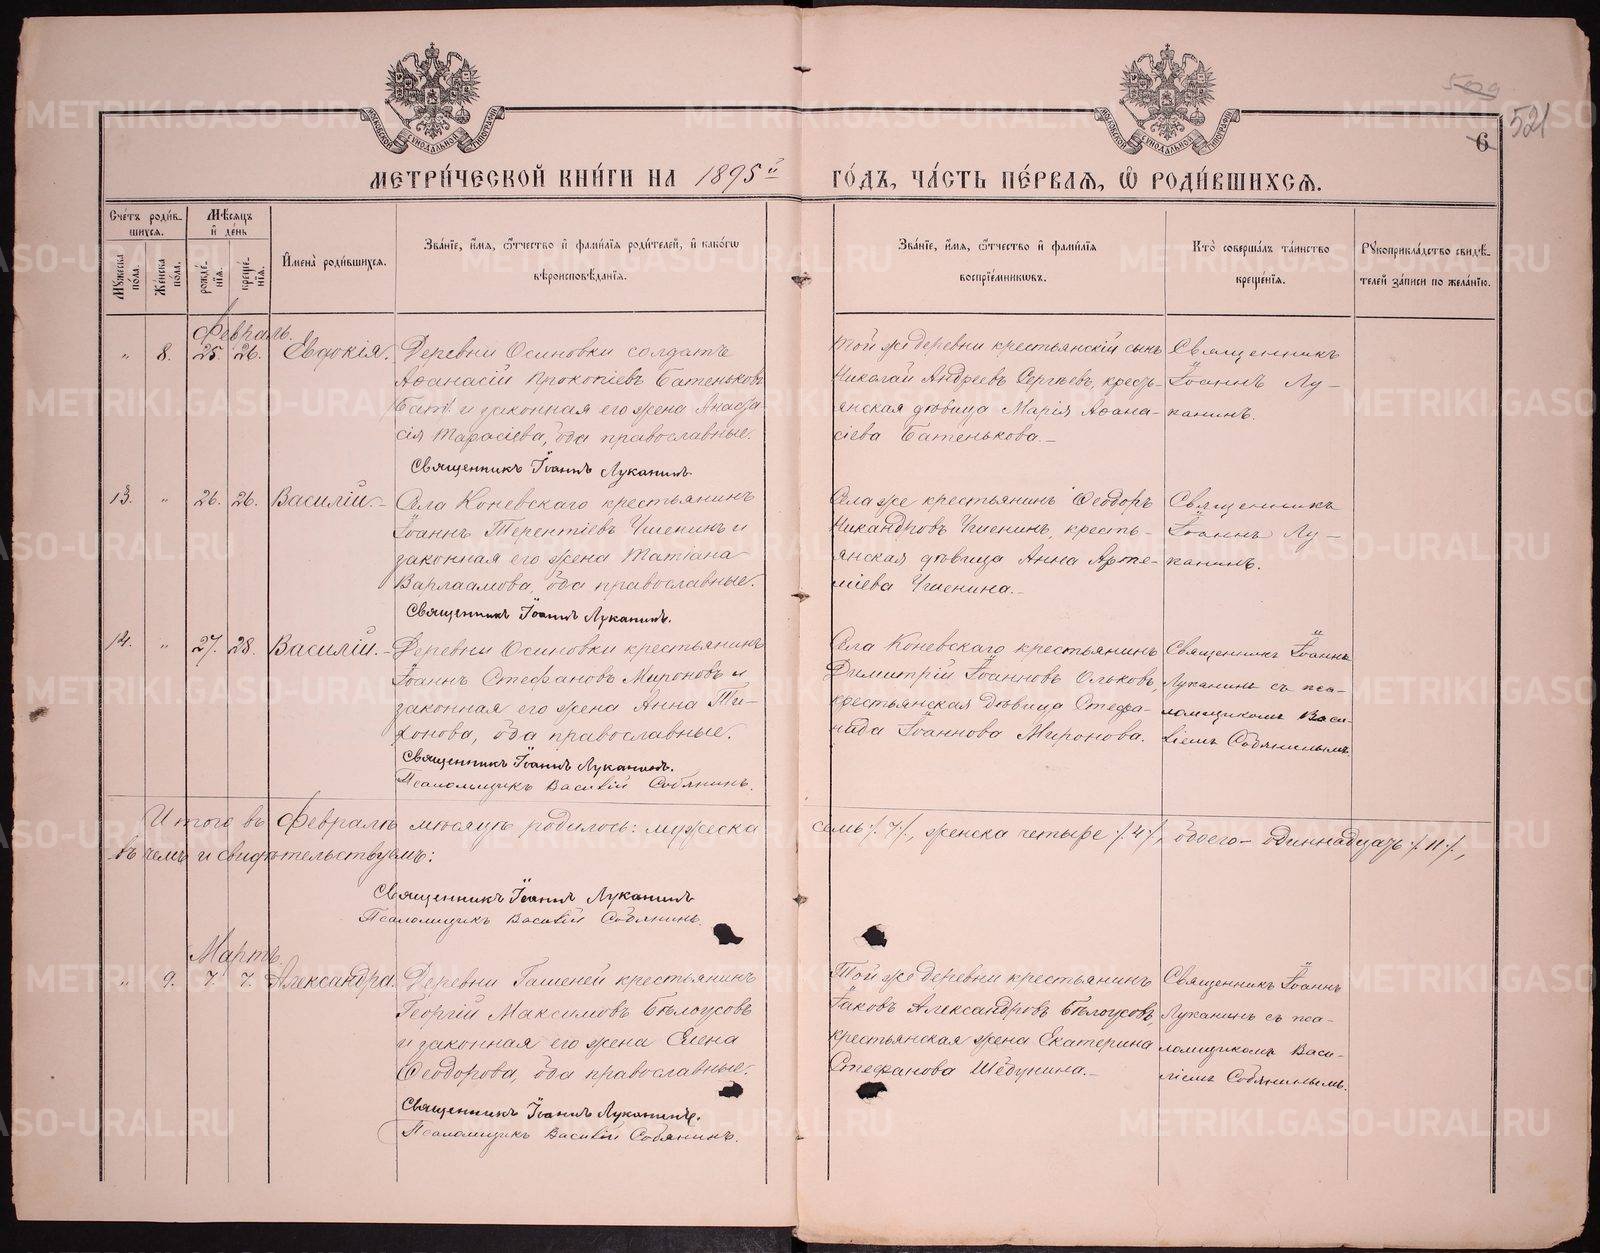 509
521
6
МОСКОВСКОЙ СѴНОДАЛЬНОЙ ТИПОГРАФІИ
МОСКОВСКОЙ СѴНОДАЛЬНОЙ ТИПОГРАФІИ
МЕТРИ́ЧЕСКОЙ КНИ́ГИ НА 1895й ГО́ДЪ, ЧА́СТЬ ПЕ́РВАЯ, Ѽ РОДИ́ВШИХСЯ.
Сче́тъ роди́вшихся.
Мꙋ́жеска по́ла.
Же́нска по́ла.
Мѣ́сяцъ и҆ де́нь
рожде́нїя.
креще́нїя.
И҆мена̀ роди́вшихся.
Зва́нїе, и҆́мя, ѻ҆́тчество и҆ фами́лїя роди́телей, и҆ како́гѡ вѣроисповѣ́данїя.
Зва́нїе, и҆́мя, ѻ҆́тчество и҆ фами́лїя воспрїе́мникѡвъ.
Кто̀ соверша́лъ та́инство креще́нїя.
Рꙋкоприкла́дство свидѣ́телей за́писи по жела́нїю.
Февраль.
" 8. 25. 26. Евдокія. Деревни Осиновки солдатъ
Аѳанасій Прокопіевъ Батеньковъ
и законная его жена Анаста-
сія Тарасіева, оба православные.
Священникъ Іоаннъ Луканинъ
Той же деревни крестьянскій сынъ
Николай Андреевъ Сергѣевъ, кресть-
янская дѣвица Марія Аѳана-
сіева Батенькова.-
Священникъ
Іоаннъ Лу-
канинъ.
13. " 26. 26. Василій.- Села Коневскаго крестьянинъ
Іоаннъ Терентіевъ Чиенинъ и
законная его жена Татіана
Варлаамова, оба православные.
Священникъ Іоаннъ Луканинъ.
Села же крестьянинъ Ѳеодоръ
Никандровъ Чиенинъ, кресть-
янская дѣвица Анна Арте-
міева Чиенина.-
Священникъ
Іоаннъ Лу-
канинъ.
14. " 27. 28. Василій.- Деревни Осиновки крестьянинъ
Іоаннъ Стефановъ Мироновъ и
законная его жена Анна Ти-
хонова, оба православные.
Священникъ Іоаннъ Луканинъ.
Псаломщикъ Василій Собянинъ.
Села Коневскаго крестьянинъ
Димитрій Іоанновъ Ольковъ,
крестьянская дѣвица Стефа-
нида Іоаннова Миронова.
Священникъ Іоаннъ
Луканинъ съ пса-
ломщикомъ Васи-
ліемъ Собянинымъ.
Итого въ Февралѣ мѣсяцѣ родилось: мужеска семь /.7/., женска четыре /.4/., обоего- одиннадцать /.11/.,
въ чемъ и свидѣтельствуемъ:
Священникъ Іоаннъ Луканинъ
Псаломщикъ Василій Собянинъ.
Мартъ.
" 9. 7. 7. Александра. Деревни Гашеней крестьянинъ
Георгій Максимовъ Бѣлоусовъ
и законная его жена Елена
Ѳеодорова, оба православные.
Священникъ Іоаннъ Луканинъ.
Псаломщикъ Василій Собянинъ.
Той же деревни крестьянинъ
Іаковъ Александровъ Бѣлоусовъ,
крестьянская жена Екатерина
Стефанова Шебунина.-
Священникъ Іоаннъ
Луканинъ съ пса-
ломщикомъ Васи-
ліемъ Собянинымъ.
METRIKI.GASO-URAL.RU